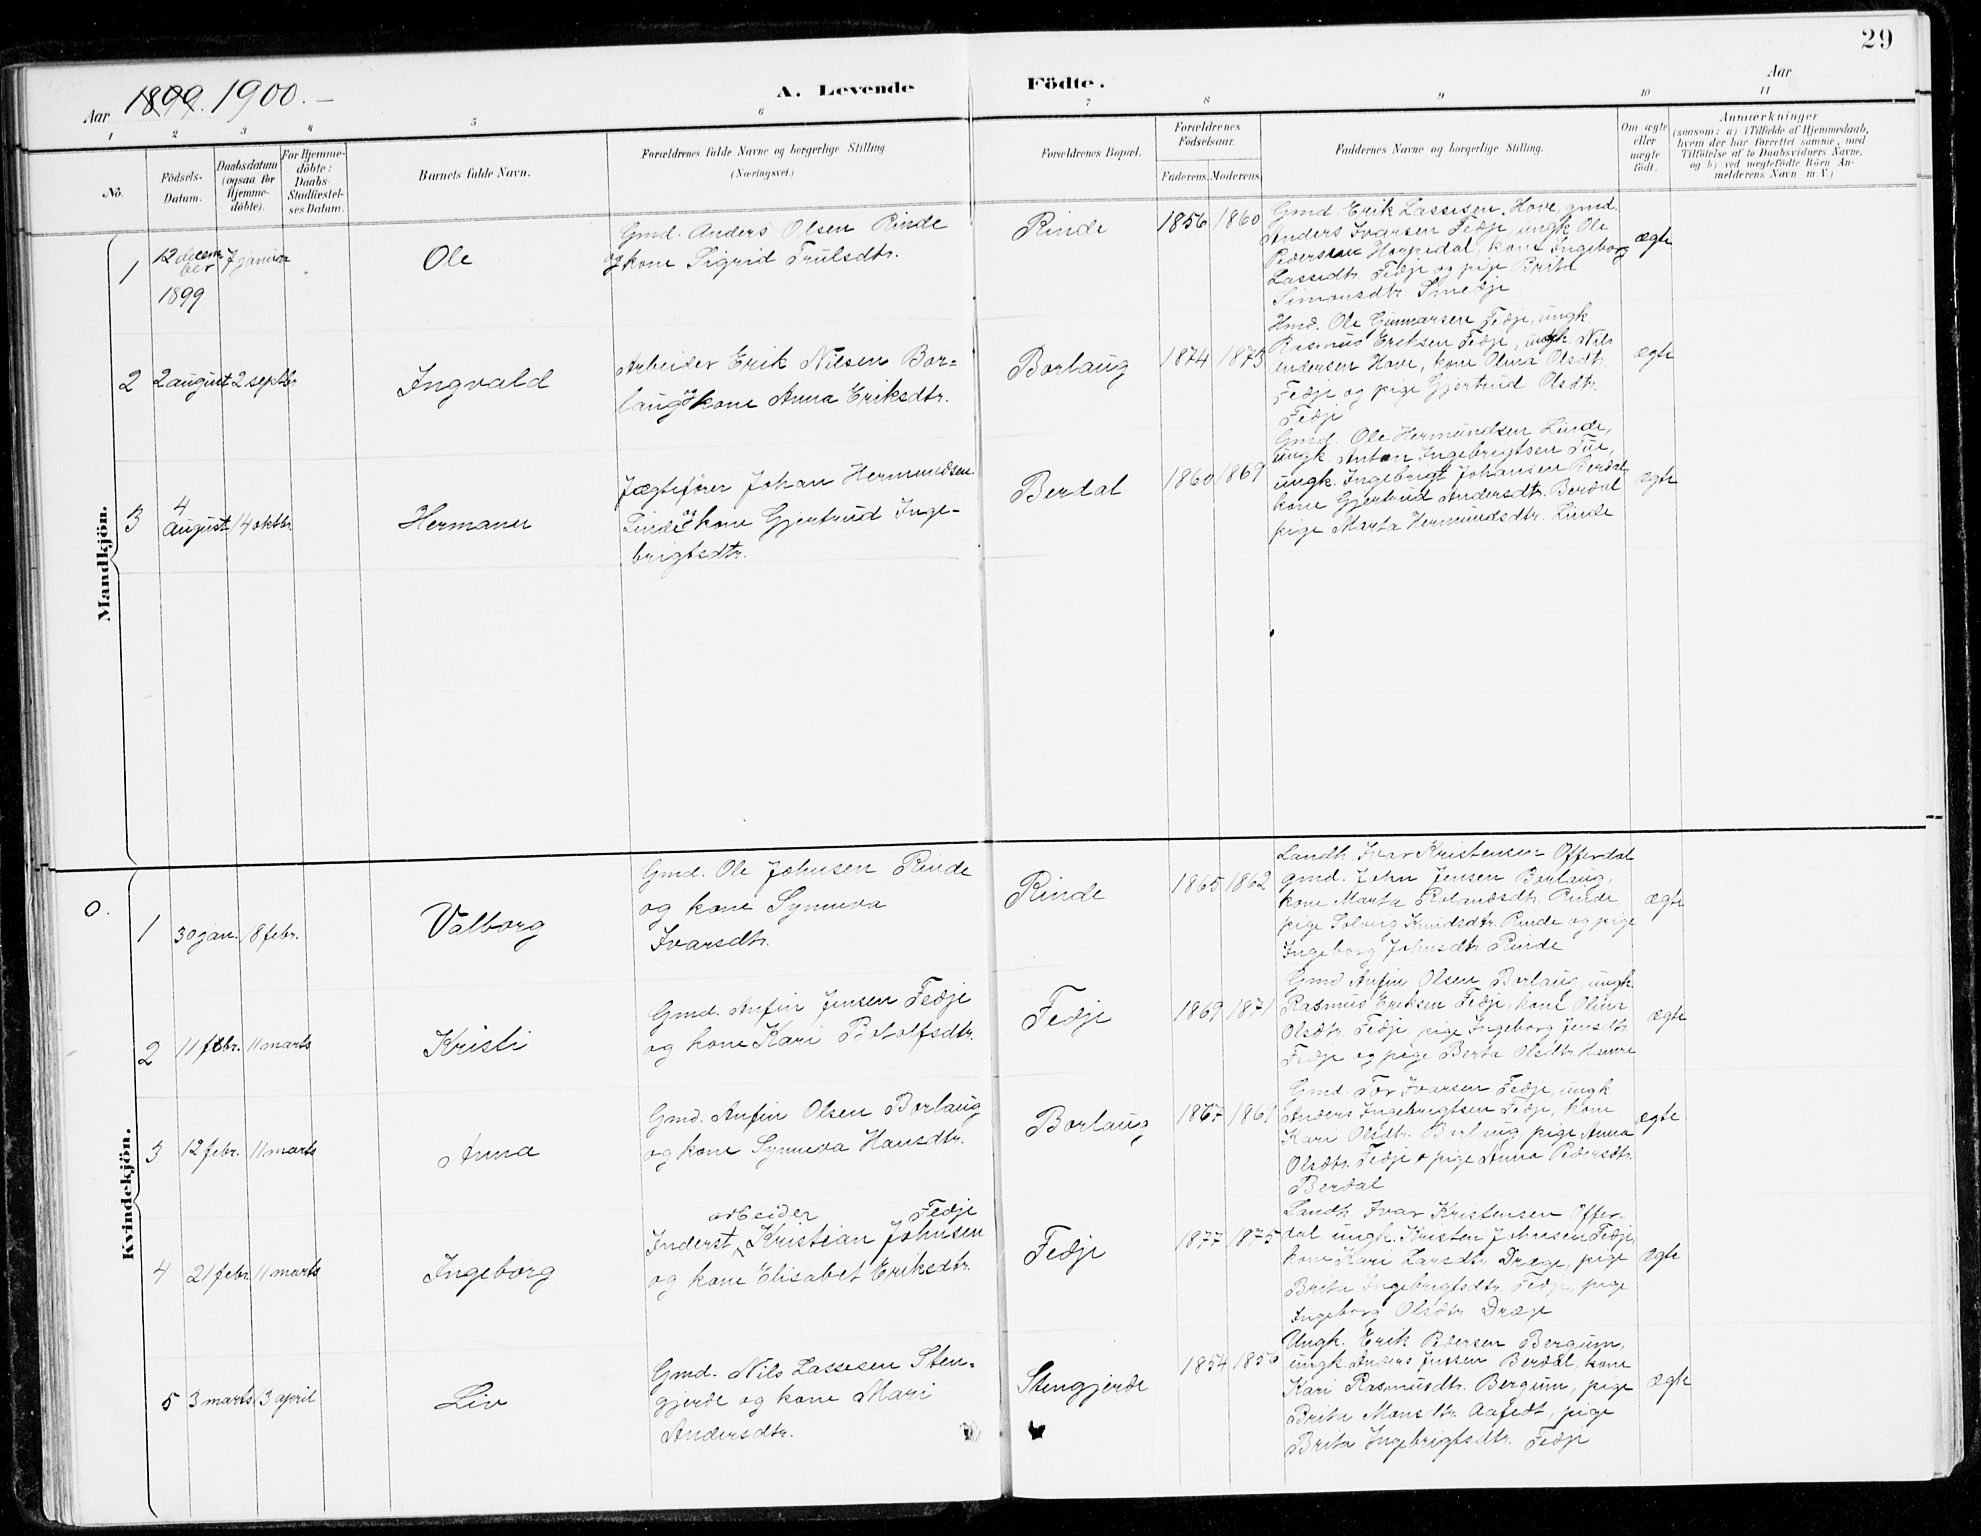 29
Aar 1899. 1900.
A. Levende Födte.
Aar
1 2 3 4 5 6 7 8 9 10 11
No.
Födsels-Datum.
Daabsdatum (ogsaa for Hjemmedöbte).
For Hjemmedöbte: Daabs-Stadfæstelses Datum.
Barnets fulde Navn.
Forældrenes fulde Navne og borgerlige Stilling
(Næringsvei.)
Forældrenes Bopæl.
Forældrenes Födselsaar.
Faderens. Moderens.
Faddernes Navne og borgerlige Stilling.
Om ægte eller uægte födt.
Anmærkninger
(saasom: a) i Tilfælde af Hjemmedaab,
hvem der har forrettet samme, med
Tilföielse af to Daabsvidners Navne.
og b) ved uægtefödte Börn An-
melderens Navn m. V.)
Mandkjön.
1 12 december 1899 7 januar Ole
Gmd. Anders Olsen Rinde
og kone Sigrid Trulsdtr.
Rinde 1856 1860
Gmd. Erik Lassesen Hove, gmd.
Anders Ivarsen Fedje, ungk Ole
Pedersen Horpedal, kone Ingeborg
Lassedtr. Fedje og pige Brita
Simonsdtr. Smedje
ægte
2 2 august 2 septbr Ingvald
Arbeider Erik Nilsen Bor-
laug og kone Anna Eriksdtr.
Borlaug 1874 1873
Hmd. Ole Gunnarsen Fedje, ungk
Rasmus Eriksen Fedje, ungk. Nils
Andersen Hove, kone Olina Olsdtr.
Fedje og pige Gjertrud Olsdtr.
Fedje
ægte
3 4 august 14 oktbr. Hermann
Jægtefører Johan Hermundsen
Linde og kone Gjertrud Inge-
brigtsdtr.
Berdal 1860 1869
Gmd. Ole Hermundsen Linde,
ungk. Anton Ingebrigtsen Tue,
ungk. Ingebrigt Johansen Berdal
kone Gjertrud Andersdtr. Berdal
pige Marta Hermundsdtr. Linde
ægte
Kvindekjön.
0.
1 30 jan. 18 febr. Valborg
Gmd. Ole Johnsen Rinde
og kone Synneva
Ivarsdtr.
Rinde 1865 1862
Landh. Ivar Kristensen Offerdal
gmd. John Jensen Borlaug,
kone Marta Rolandsdtr. Rinde,
pige Solveig Knudsdtr. Rinde og pige
Ingeborg Johnsdtr. Rinde
ægte
2 11 febr. 11 marts Kristi
Gmd. Anfin Jensen Fedje
og kone Kari Botolfsdtr.
Fedje 1869 1871
Gmd Anfin Olsen Borlaug, ungk.
Rasmus Eriksen Fedje, kone Olina
Olsdtr. Fedje, pige Ingeborg Jensdtr.
Fedje og pige Berta Olsdtr Hamre
ægte
3 12 febr. 11 marts Anna
Gmd. Anfin Olsen Borlaug
og kone Synneva Hansdtr.
Borlaug 1867 1861
Gmd. Tor Ivarsen Fedje, ungk
Anders Ingebrigtsen Fedje, kone
Kari Olsdtr. Borlaug pige Anna
Olsdtr. Fedje & pige Anna Pedersdtr.
Berdal
ægte
4 21 febr 11 marts Ingeborg
arbeider Fedje
Inderst Kristian Johnsen
og kone Elisabet Eriksdtr.
Fedje 1877 1875
Landh. Ivar Kristensen Offer-
dal ungk. Kristen Johnsen Fedje,
kone Kari Larsdtr. Dræge, pige
Brita Ingebrigtsdtr. Fedje, pige
Ingeborg Olsdtr Dræge
ægte
5 3 marts 13 april Liv
Gmd. Nils Lassesen Sten-
gjerde og kone Mari
Andersdtr.
Stengjerde 1854 1856
Ungk. Erik Pedersen Bergum,
ungk. Anders Jensen Berdal, kone
Kari Rasmusdtr. Bergum, pige
Brita Monsdtr. Aafedt, pige
Brita Ingebrigtsdtr. Fedje
ægte